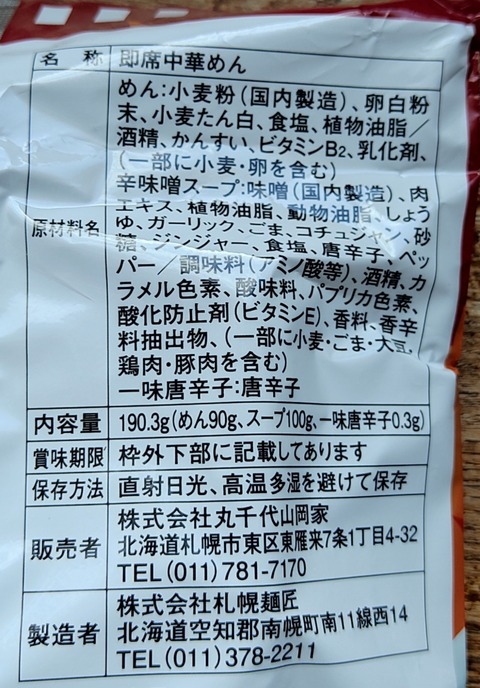 名称 即席中華めん
原材料名
めん:小麦粉(国内製造)、卵白粉
末、小麦たん白、食塩、植物油脂/
酒精、かんすい、ビタミンB2、乳化剤、
(一部に小麦・卵を含む)
辛味噌スープ:味噌(国内製造)、肉
エキス、植物油脂、動物油脂、しょう
ゆ、ガーリック、ごま、コチュジャン、砂
糖、ジンジャー、食塩、唐辛子、ペッ
パー/調味料(アミノ酸等)、酒精、カ
ラメル色素、酸味料、パプリカ色素、
酸化防止剤(ビタミンE)、香料、香辛
料抽出物、(一部に小麦・ごま・大豆・
鶏肉・豚肉を含む)
一味唐辛子:唐辛子
内容量 190.3g(めん90g、スープ100g、一味唐辛子0.3g)
賞味期限 枠外下部に記載してあります
保存方法 直射日光、高温多湿を避けて保存
販売者
株式会社丸千代山岡家
北海道札幌市東区東雁来7条1丁目4-32
TEL(011)781-7170
製造者
株式会社札幌麺匠
北海道空知郡南幌町南11線西14
TEL(011)378-2211